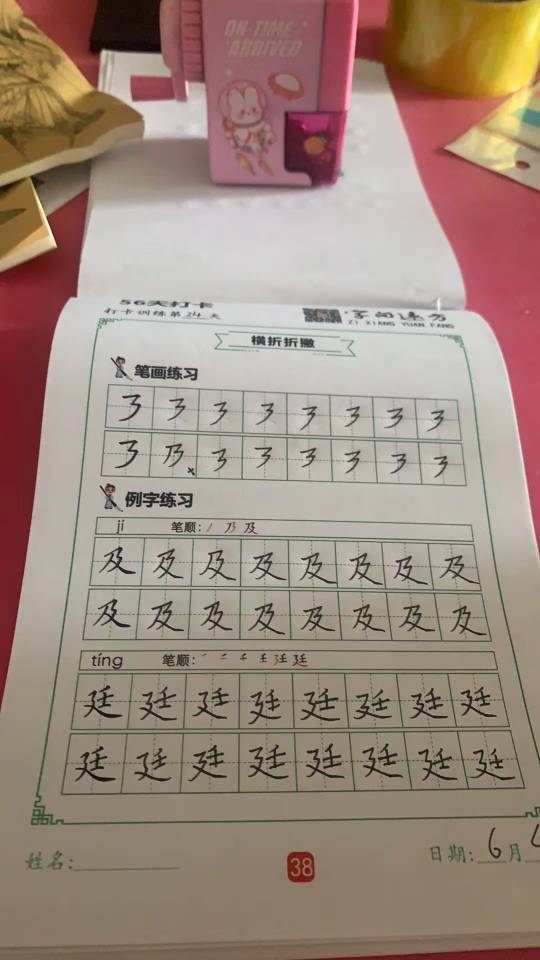 ON-TIME
ARRIVED
56天打卡
打卡训练第24天
字向远方
ZI XIANG YUAN FANG
横折折撇
笔画练习
㇋ ㇋ ㇋ ㇋ ㇋ ㇋ ㇋ ㇋
㇋ 乃 ㇋ ㇋ ㇋ ㇋ ㇋ ㇋
例字练习
jí 笔顺: 丿 乃 及
及 及 及 及 及 及 及 及
及 及 及 及 及 及 及 及
tíng 笔顺: 一 二 千 壬 廷 廷
廷 廷 廷 廷 廷 廷 廷 廷
廷 廷 廷 廷 廷 廷 廷 廷
姓名: 38 日期: 6月